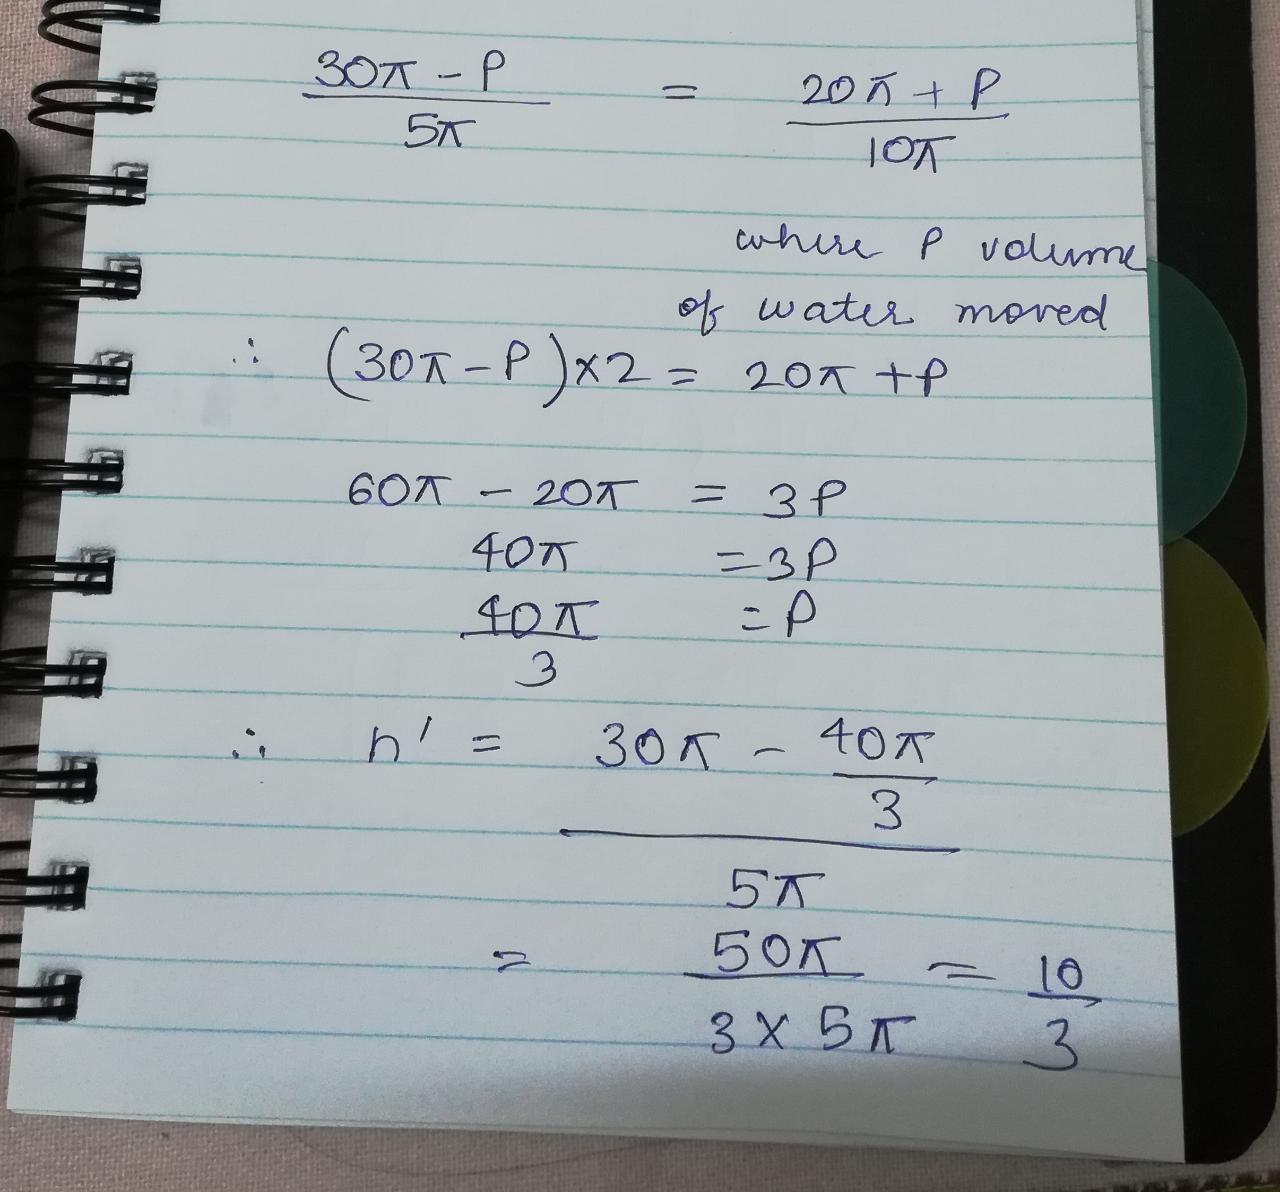 30π - P = 20π + P
5π 10π
where P volume
of water moved
∴ (30π - P) × 2 = 20π + P
60π - 20π = 3P
40π = 3P
40π = P
3
∴ h' = 30π - 40π
3
5π
= 50π = 10
3 × 5π 3